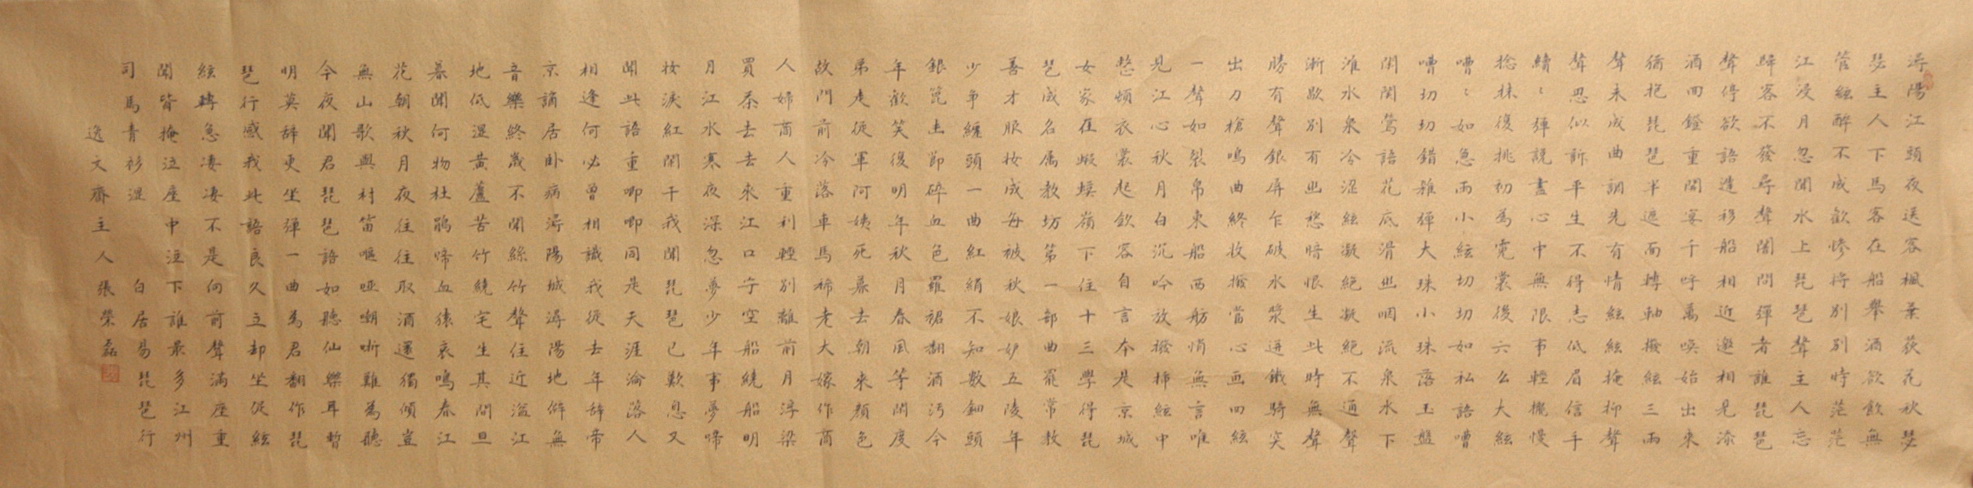 潯陽江頭夜送客楓葉荻花秋瑟
瑟主人下馬客在船舉酒欲飲無
管絃醉不成歡慘將別別時茫茫
江浸月忽聞水上琵琶聲主人忘
歸客不發尋聲闇問彈者誰琵琶
聲停欲語遲移船相近邀相見添
酒回鐙重開宴千呼萬喚始出來
猶抱琵琶半遮面轉軸撥絃三兩
聲未成曲調先有情絃絃掩抑聲
聲思似訴平生不得志低眉信手
續〻彈說盡心中無限事輕攏慢
捻抹復挑初為霓裳後六么大絃
嘈〻如急雨小絃切切如私語嘈
嘈切切錯雜彈大珠小珠落玉盤
閒關鶯語花底滑幽咽流泉水下
灘水泉冷澀絃凝絕凝絕不通聲
漸歇別有幽愁暗恨生此時無聲
勝有聲銀屏乍破水漿迸鐵騎突
出刀槍鳴曲終收撥當心画四絃
一聲如裂帛東船西舫悄無言唯
見江心秋月白沉吟放撥插絃中
整頓衣裳起斂容自言本是京城
女家在蝦蟆嶺下住十三學得琵
琶成名属教坊第一部曲罷常教
善才服妝成每被秋娘妒五陵年
少爭纏頭一曲紅綃不知數鈿頭
銀篦击節碎血色羅裙翻酒污今
年歡笑復明年秋月春風等閒度
弟走從軍阿姨死暮去朝來顏色
故門前冷落車馬稀老大嫁作商
人婦商人重利輕別離前月浮梁
買茶去去來江口守空船繞船明
月江水寒夜深忽夢少年事夢啼
妝淚紅闌干我聞琵琶已歎息又
聞此語重唧唧同是天涯淪落人
相逢何必曾相識我從去年辭帝
京謫居卧病潯陽城潯陽地僻無
音樂終歲不聞絲竹聲住近湓江
地低濕黃蘆苦竹繞宅生其間旦
暮聞何物杜鵑啼血猿哀鳴春江
花朝秋月夜往往取酒還獨傾豈
無山歌與村笛嘔啞嘲哳難為聽
今夜聞君琵琶語如聽仙樂耳暫
明莫辭更坐彈一曲為君翻作琵
琶行感我此語良久立却坐促絃
絃轉急凄凄不是向前聲滿座重
聞皆掩泣座中泣下誰最多江州
司馬青衫濕 白居易琵琶行
逸文齋主人張榮磊